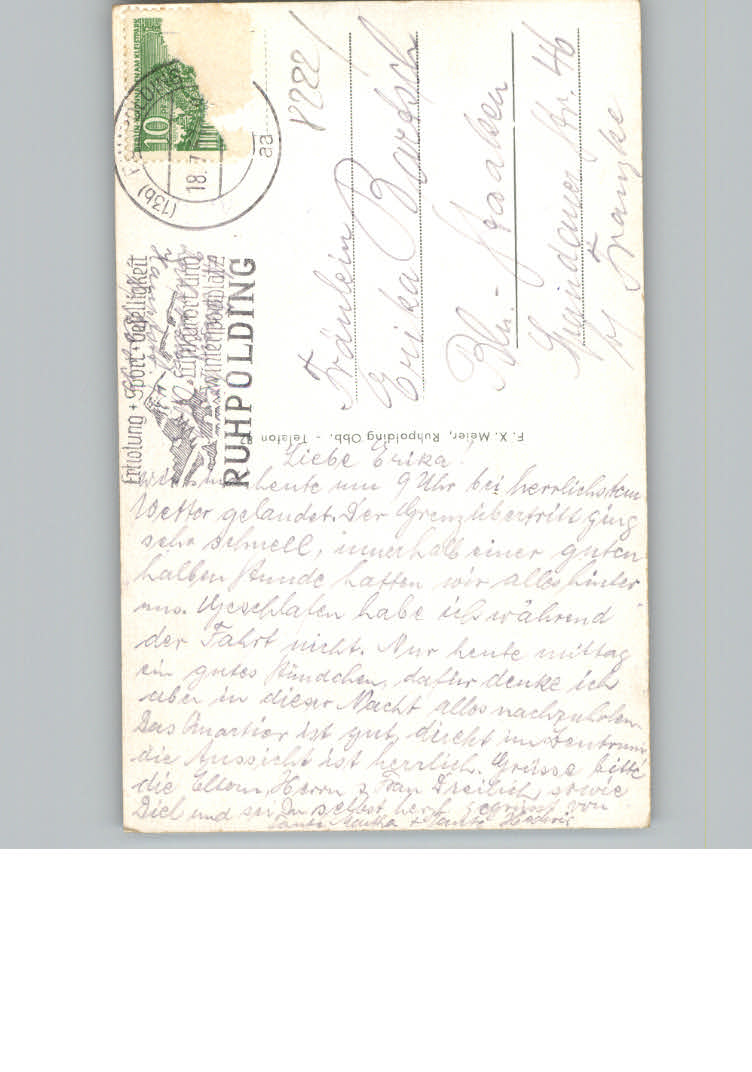 BERLIN KOLONNADEN AM KLEISTPARK
10
(13b) RUHPOLDING
18.
aa
Erholung + Sport + Geselligkeit
Luftkurort und
Wintersportplatz
RUHPOLDING
8222/
Fräulein
Erika Bartsch
Bln.- Staaken
Str. 46
b/ Franzke
F. X. Meier, Ruhpolding Obb. - Telefon
Liebe Erika.
wir sind heute um 9 Uhr bei herrlichstem
Wetter gelandet. Der Grenzübertritt ging
sehr schnell, innerhalb einer guten
halben Stunde hatten wir alles hinter
uns. Geschlafen habe ich während
der Fahrt nicht. Nur heute mittag
ein gutes Stündchen, dafür denke ich
aber in dieser Nacht alles nachzuholen.
Das Quartier ist gut, direkt im Zentrum
die Aussicht ist herrlich. Grüsse bitte
die Eltern, Herrn & Frau Dreilich, sowie
Dich und sei Du selbst herzl. gegrüsst von
Tante Martha + Tante Hedwig